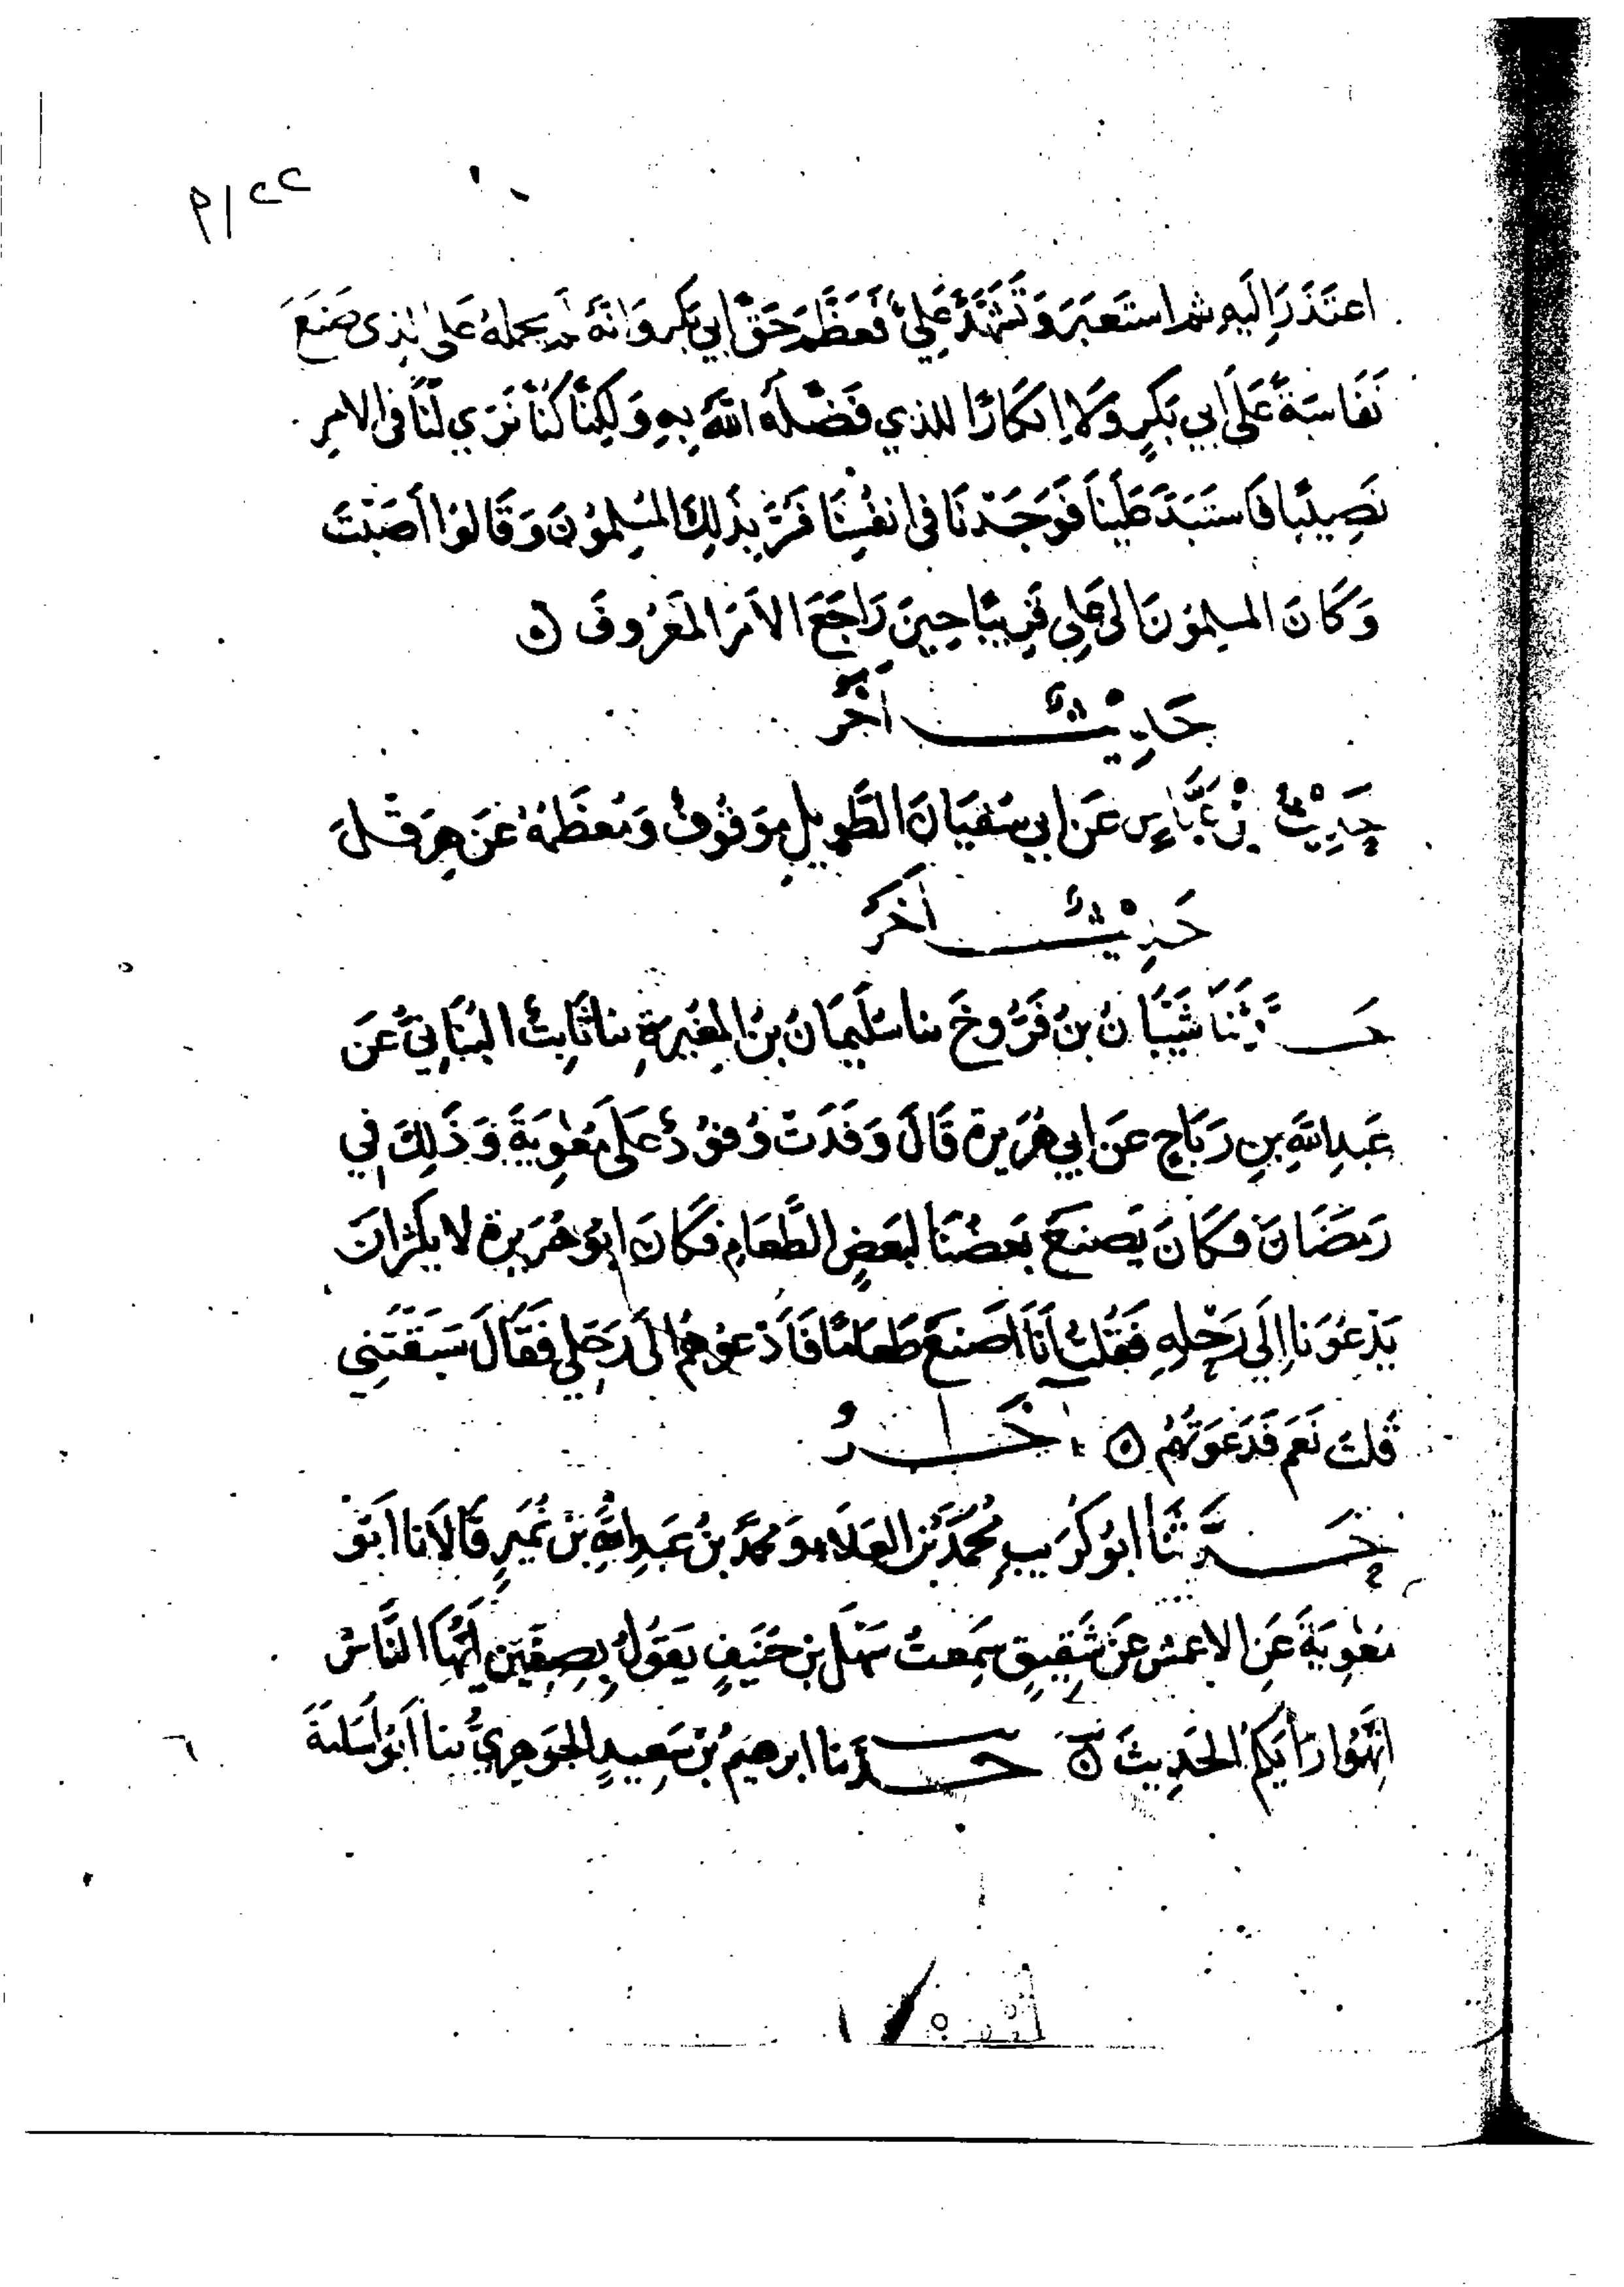 ٢٢/م
اعتَذَرَ إِلَيهِ ثم استَعبَرَ وَتَشَهَّدَ عَلِيٌّ فَعَظَّمَ حَقَّ ابي بَكرٍ وَانَّهُ لَم يحملهُ عَلى الذِى صَنَعَ
نَفَاسَةً عَلَى أَبي بَكرٍ وَلَا إِنكَارًا للذي فَضَّلَهُ اللَّهُ بِهِ وَلَكِنَّا كُنَّا نَرَي لَنَا فى الامرِ
نَصِيبًا فَاستَبَدَّ عَلَينَا فَوَجَدْنَا فى انفُسِنَا فَسُرَّ بِذَلِكَ المُسلِمُونَ وَقَالوُا أَصَبْتَ
وَكَانَ المسلِمُونَ الى عَلِي قَرِيبًا حِينَ رَاجَعَ الاَمرَ المَعْرُوفَ ه
حَدِيثٌ آخَرُ
حَدِيثُ ابْنِ عَبَّاسٍ عَن ابي سُفيَانَ الطَّوِيلِ مَوقُوفٌ وَمُعظَمُهُ عَن هِرَقْلَ
حَدِيثٌ آخَرُ
حَدَّثَنَا شَيْبَانُ بنُ فَرُّوخَ ثنا سُلَيمَانُ بنُ المُغِيرَةِ ثنا ثَابِتٌ البُنَانِيُّ عَن
عَبدِ اللَّهِ بنِ رَبَاحٍ عَن ابي هُرَيرة قَالَ وَفَدَتْ وُفُودٌ عَلَى مُعٰوِيَةَ وَذَلِكَ فِي
رَمَضَانَ فكَانَ يَصنَعُ بَعضُنَا لبَعضٍ الطَّعَامَ فكَانَ ابوُ هُرَيرة لا يكثرُ ان
يَدْعُوَنا إِلَي رَحْلِهِ فَقُلتُ أَنَا اَصنَعُ طَعَامًا فَأَدْعُوهُم الَى رَحلي فَقَالَ سَبَقْتَنِي
قُلتُ نَعَم فَدَعَوتُهُم ه آخَرُ
حَدَّثَنَا ابوُ كُرَيبٍ مُحَمَّدُ بْنُ العَلَاءِ وَمُحمَّدُ بنُ عَبدِ اللَّهِ بْنِ نُمَيرٍ قَالَا نا ابوُ
مُعٰوِيَةَ عَنِ الاعمَشِ عَنْ شَقِيقٍ سَمِعتُ سَهْلَ بنَ حُنَيفٍ يَقوُلُ بِصِفِّينَ ايُّهَا النَّاسُ
اتَّهِمُوا رَأْيَكُم الحَدِيثَ ه حَدَّثَنَا ابرهيمُ بْنُ سَعِيدٍ الجَوهَرِيُّ ثنا أبوُ أُسَامَةَ